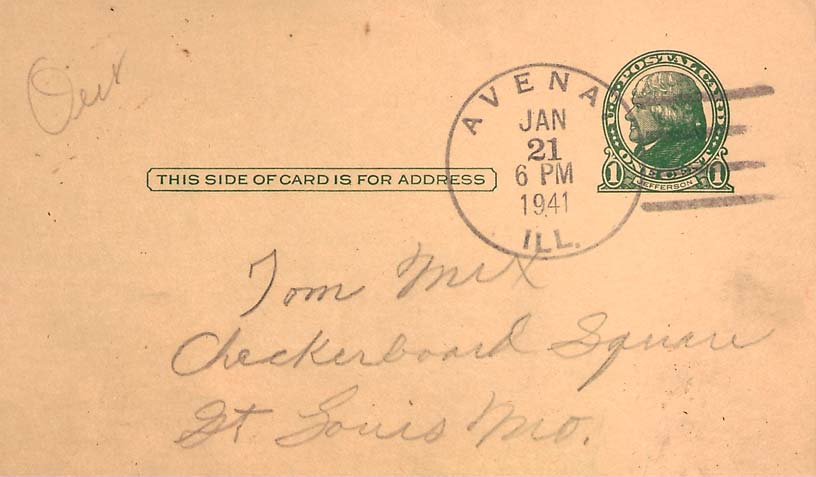 U.S. POSTAL CARD
ONE CENT
1 JEFFERSON 1
AVENA
JAN
21
6 PM
1941
ILL.
THIS SIDE OF CARD IS FOR ADDRESS
Tom Mix
Checkerboard Square
St Louis Mo.